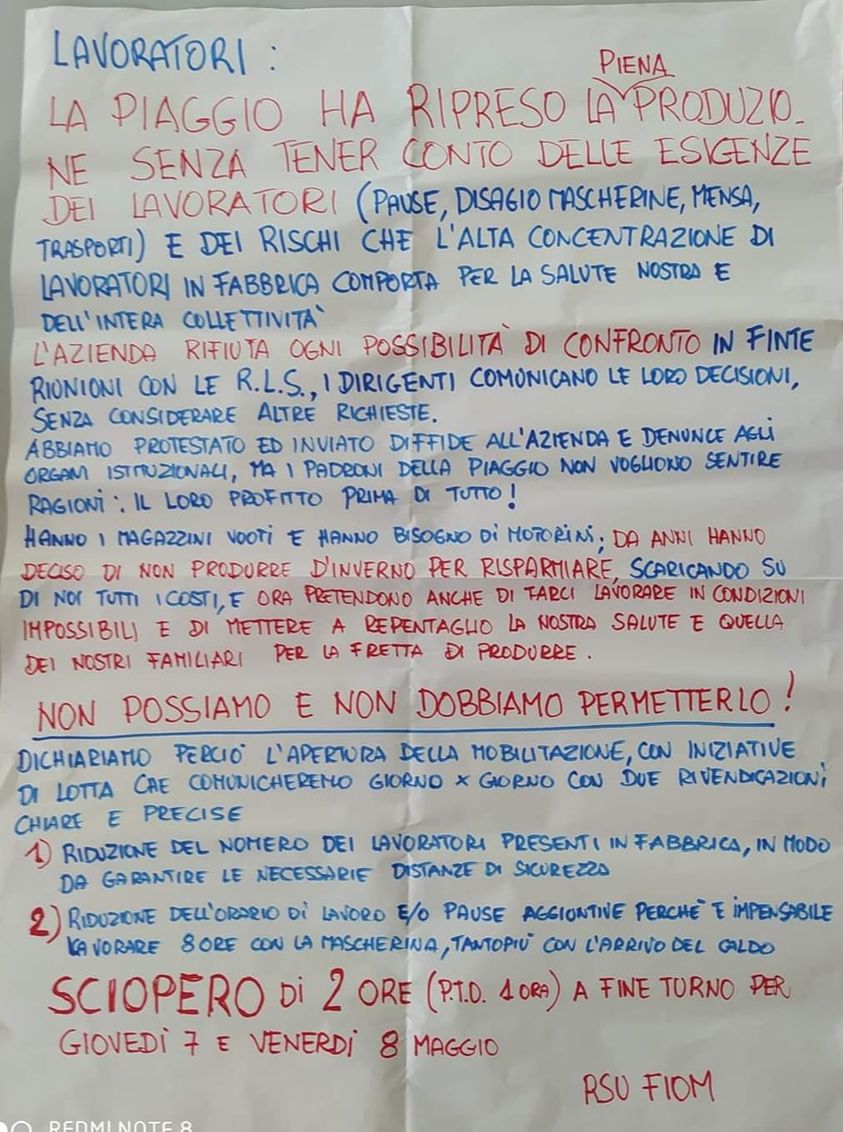 LAVORATORI :
PIENA
LA PIAGGIO HA RIPRESO LA PRODUZIO-
NE SENZA TENER CONTO DELLE ESIGENZE
DEI LAVORATORI (PAUSE, DISAGIO MASCHERINE, MENSA,
TRASPORTI) E DEI RISCHI CHE L'ALTA CONCENTRAZIONE DI
LAVORATORI IN FABBRICA COMPORTA PER LA SALUTE NOSTRA E
DELL'INTERA COLLETTIVITÀ
L'AZIENDA RIFIUTA OGNI POSSIBILITÀ DI CONFRONTO IN FINTE
RIUNIONI CON LE R.L.S., I DIRIGENTI COMUNICANO LE LORO DECISIONI,
SENZA CONSIDERARE ALTRE RICHIESTE.
ABBIAMO PROTESTATO ED INVIATO DIFFIDE ALL'AZIENDA E DENUNCE AGLI
ORGANI ISTITUZIONALI, MA I PADRONI DELLA PIAGGIO NON VOGLIONO SENTIRE
RAGIONI: IL LORO PROFITTO PRIMA DI TUTTO!
HANNO I MAGAZZINI VUOTI E HANNO BISOGNO DI MOTORINI; DA ANNI HANNO
DECISO DI NON PRODURRE D'INVERNO PER RISPARMIARE, SCARICANDO SU
DI NOI TUTTI I COSTI, E ORA PRETENDONO ANCHE DI FARCI LAVORARE IN CONDIZIONI
IMPOSSIBILI E DI METTERE A REPENTAGLIO LA NOSTRA SALUTE E QUELLA
DEI NOSTRI FAMILIARI PER LA FRETTA DI PRODURRE.
NON POSSIAMO E NON DOBBIAMO PERMETTERLO!
DICHIARIAMO PERCIÒ L'APERTURA DELLA MOBILITAZIONE, CON INIZIATIVE
DI LOTTA CHE COMUNICHEREMO GIORNO X GIORNO CON DUE RIVENDICAZIONI
CHIARE E PRECISE
1) RIDUZIONE DEL NUMERO DEI LAVORATORI PRESENTI IN FABBRICA, IN MODO
DA GARANTIRE LE NECESSARIE DISTANZE DI SICUREZZA
2) RIDUZIONE DELL'ORARIO DI LAVORO E/O PAUSE AGGIUNTIVE PERCHÈ È IMPENSABILE
LAVORARE 8 ORE CON LA MASCHERINA, TANTOPIÙ CON L'ARRIVO DEL CALDO
SCIOPERO DI 2 ORE (P.T.O. 1 ORA) A FINE TURNO PER
GIOVEDÌ 7 E VENERDÌ 8 MAGGIO
RSU FIOM
REDMI NOTE 8